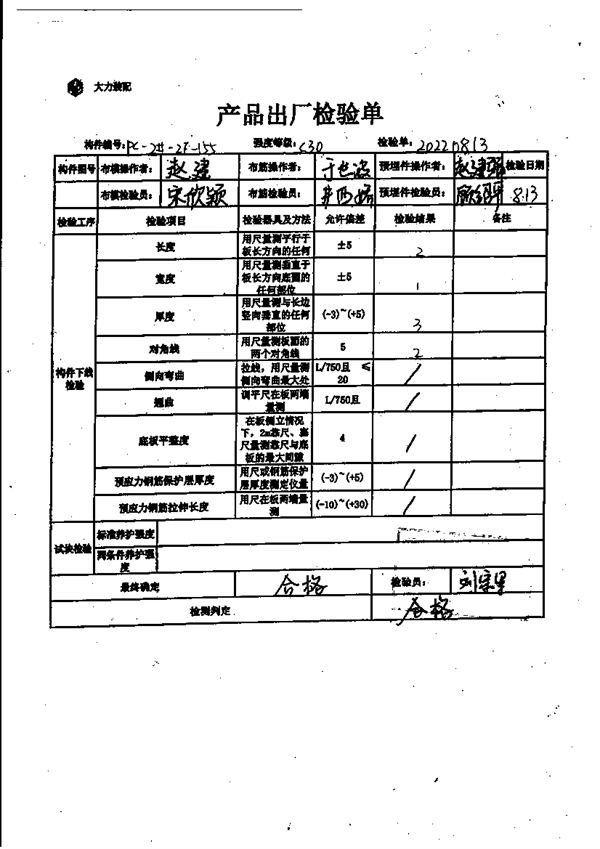 大力装配
产品出厂检验单
构件编号: PC-2#-2F-155 强度等级: C30 检验单: 20220813
构件图号 布模操作者: 赵建 布筋操作者: 预埋件操作者: 赵建 检验日期
布模检验员: 宋欣颖 布筋检验员: 预埋件检验员: 8.13
检验工序 检验项目 检验器具及方法 允许偏差 检验结果 备注
构件下线检验
长度 用尺量测平行于板长方向的任何 ±5 2
宽度 用尺量测垂直于板长方向底面的任何部位 ±5 1
厚度 用尺量测与长边竖向垂直的任何部位 (-3)~(+5) 3
对角线 用尺量测板面的两个对角线 5 2
侧向弯曲 拉线，用尺量测侧向弯曲最大处 L/750且 ≤20 /
翘曲 调平尺在板两端量测 L/750且 /
底板平整度 在板侧立情况下，2m靠尺、塞尺量测靠尺与底板的最大间隙 4 /
预应力钢筋保护层厚度 用尺或钢筋保护层厚度测定仪量 (-3)~(+5) /
预应力钢筋拉伸长度 用尺在板两端量测 (-10)~(+30) /
试块检验 标准养护强度
同条件养护强度
最终确定 合格 检验员:
检测判定 合格